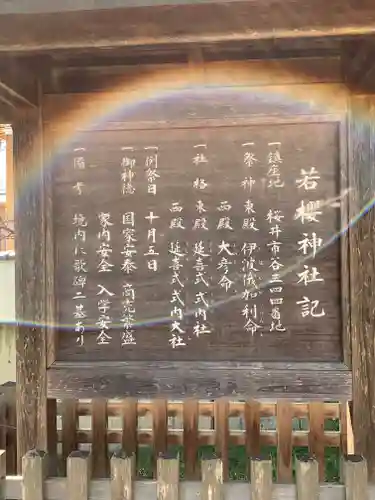 若櫻神社記
一鎮座地 桜井市谷三四四番地
一祭神 東殿 伊波俄加利命
西殿 大彦命
一社格 東殿 延喜式 式内社
西殿 延喜式 式内大社
一例祭日 十月五日
一御神徳 国家安泰 商売繁盛
家内安全 入学安全
一備考 境内に歌碑二基あり